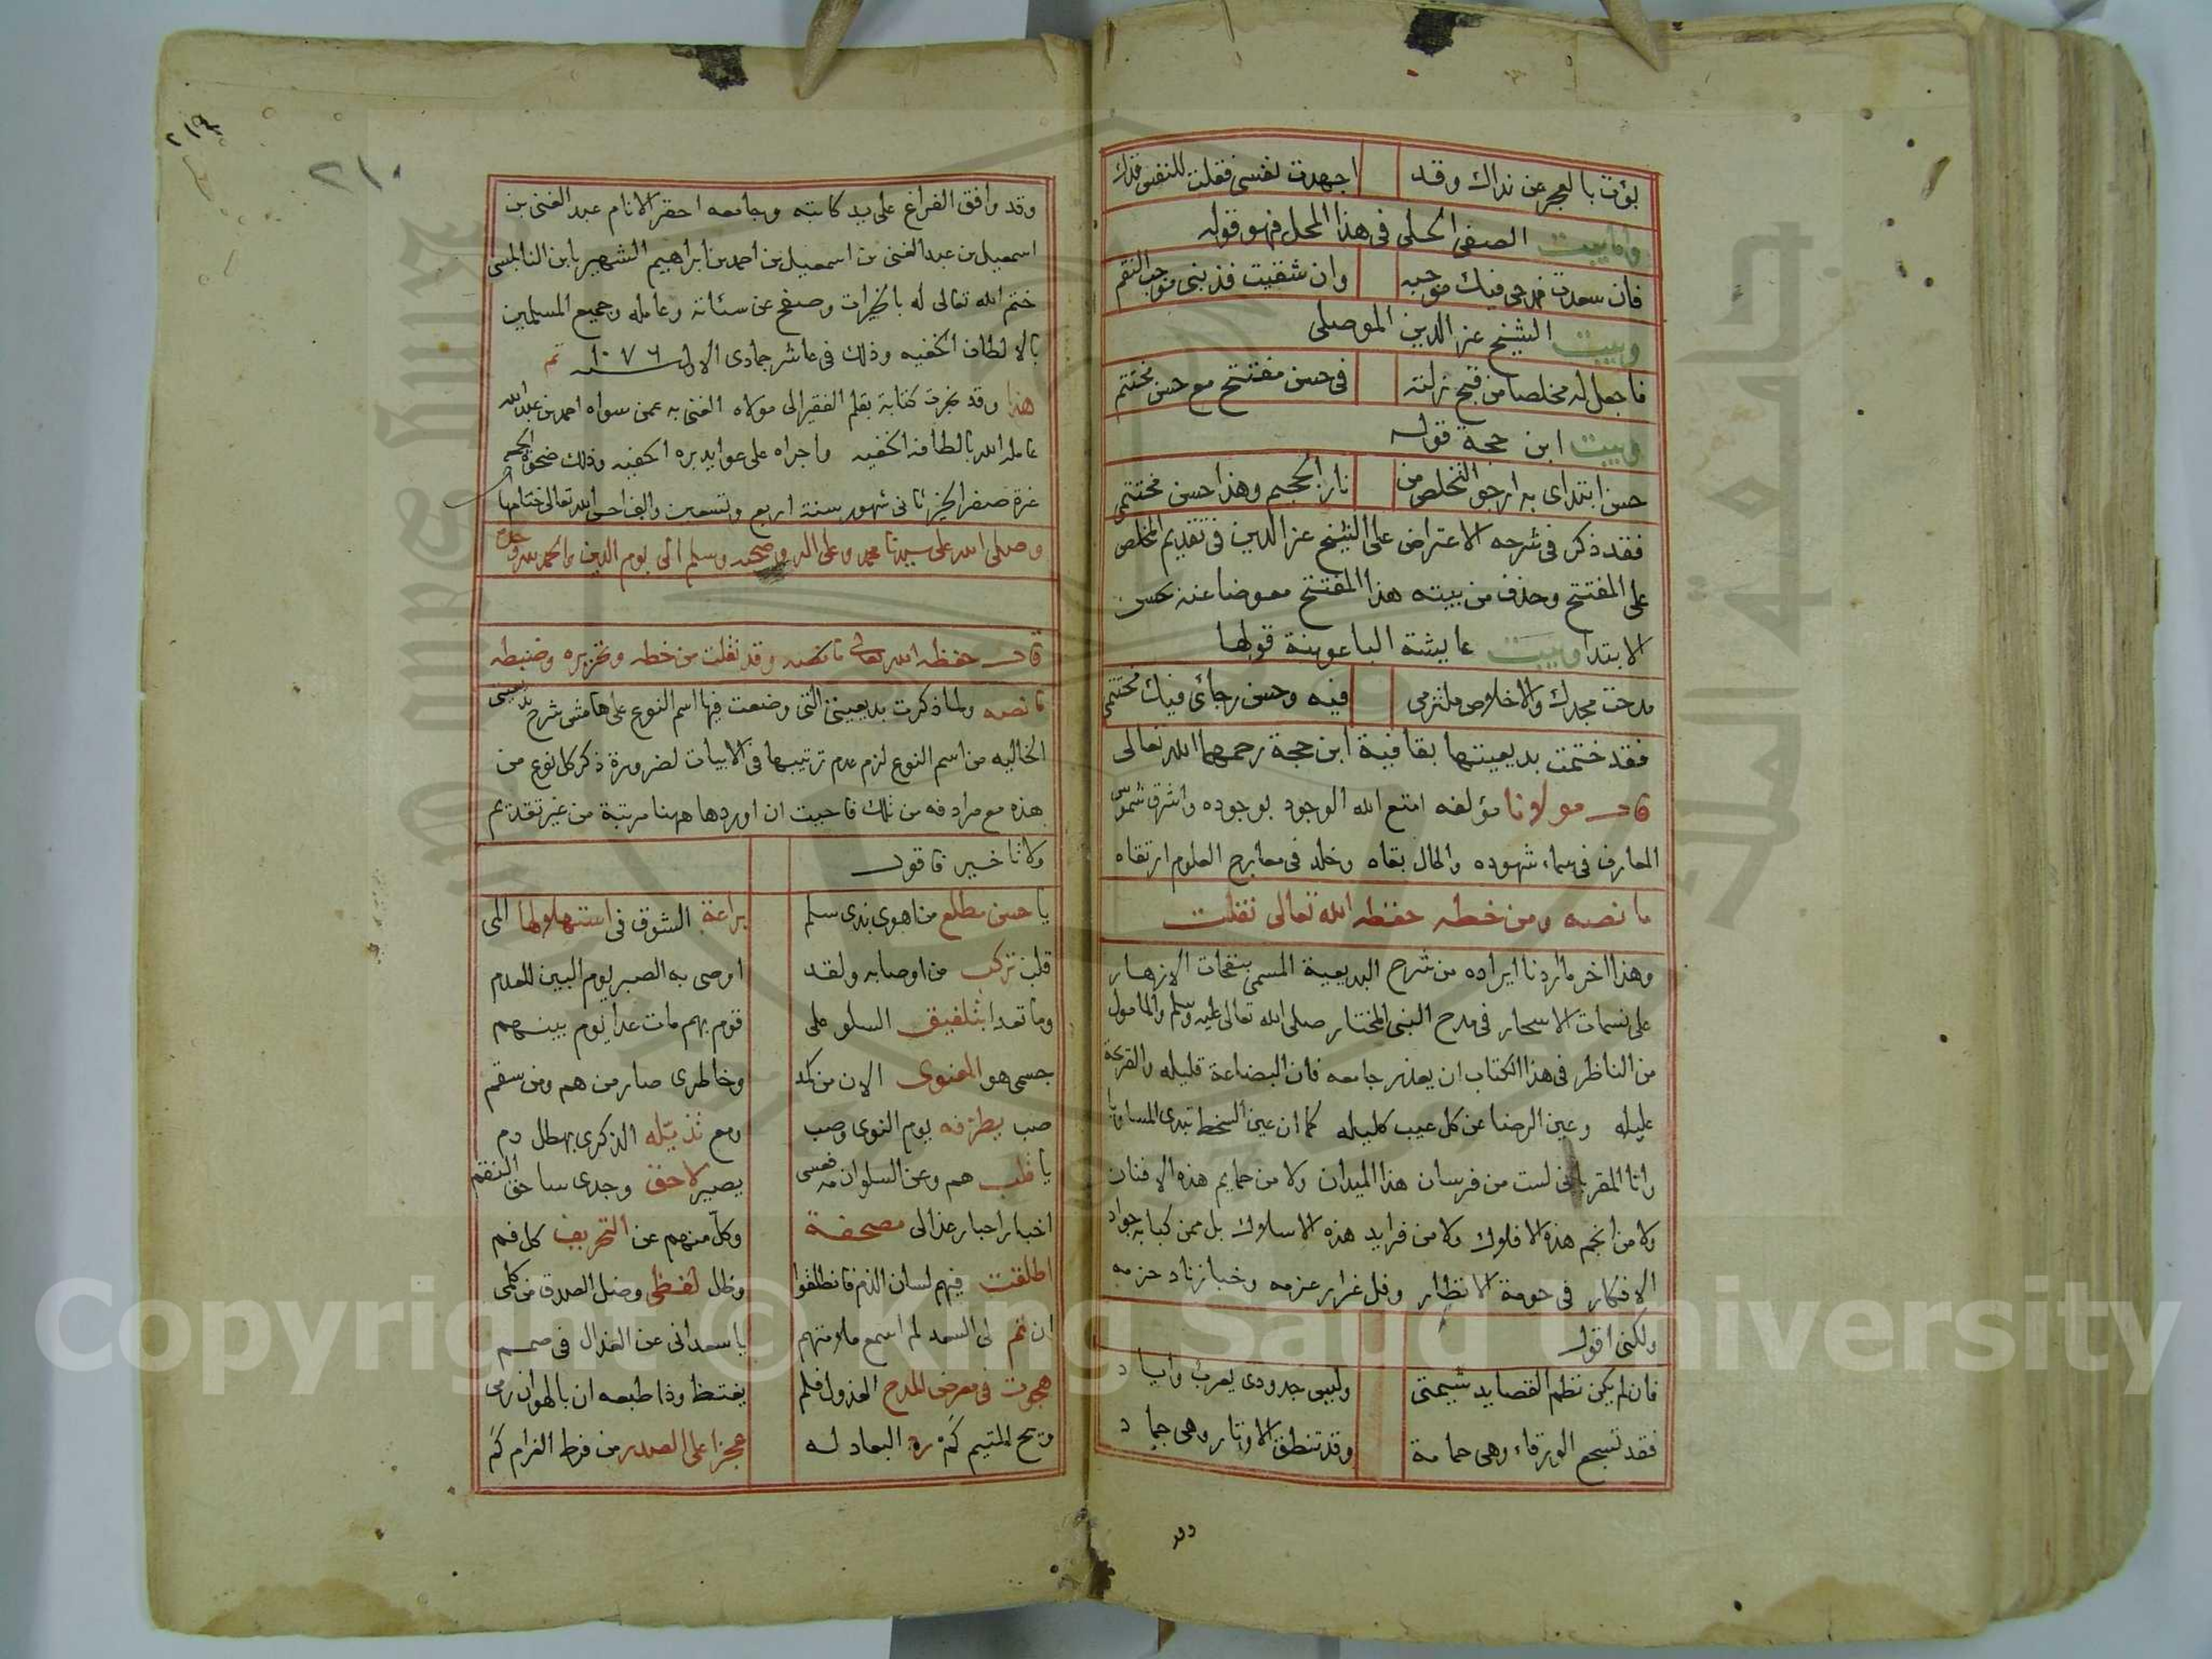 بؤت بالعجز عن نداك وقد اجهدت نفسي فقلت للنفس قدك
واما بيت الصفي الحلي في هذا المحل فهو قوله
فان سعدت فمدحي فيك موجبه وان شقيت فذنبي موجب النقم
وبيت الشيخ عز الدين الموصلي
فاجعل له مخلصا من قبح زلته في حسن مفتتح مع حسن مختتم
وبيت ابن حجة قوله
حسن ابتداي به ارجو التخلص من نار الجحيم وهذا حسن مختتمي
فقد ذكر في شرحه الاعتراض على الشيخ عز الدين في تقديم المخلص
على المفتتح وحذف من بيته هذا المفتتح معوضا عنه بحسن
الابتدا وبيت عايشة الباعونية قولها
مدحت مجدك والاخلاص ملتزمي فيه وحسن رجائي فيك مختتمي
فقد ختمت بديعيتها بقافية ابن حجة رحمهما الله تعالى
قال مولانا مؤلفه امتع الله الوجود بوجوده واشرق شموس
المعارف في سماء شهوده واطال بقاه وخلد في معارج العلوم ارتقاه
ما نصه ومن خطه حفظه الله تعالى نقلت
وهذا اخر ما اردنا ايراده من شرح البديعية المسمى بنفحات الازهار
على نسمات الاسحار في مدح النبي المختار صلى الله تعالى عليه وسلم والمامول
من الناظر في هذا الكتاب ان يعذر جامعه فان البضاعة قليله والقريحة
عليله وعين الرضا عن كل عيب كليله كما ان عين السخط تبدي المساويا
وانا المقر باني لست من فرسان هذا الميدان ولا من حمايم هذه الافنان
ولا من انجم هذه الافلاك ولا من فرايد هذه الاسلاك بل ممن كبا به جواد
الافكار في حومة الانظار وفل غرار عزمه وخبا زناد حزمه
ولكني اقول
فان لم يكن نظم القصايد شيمتي وليس جدودي يعرب واياد
فقد تسجع الورقاء وهي حمامة وقد تنطق الاوتار وهي جماد
وقد
٢١٠
وقد وافق الفراغ على يد كاتبه وجامعه احقر الانام عبد الغني بن
اسمعيل بن عبد الغني بن اسمعيل بن احمد بن ابراهيم الشهير بابن النابلسي
ختم الله تعالى له بالخيرات وصفح عن سئاته وعامله وجميع المسلمين
بالالطاف الخفيه وذلك في عاشر جمادى الاول سنة ١٠٧٦ تم
هذا وقد نجزت كتابة بقلم الفقير الى مولاه الغني به عمن سواه احمد بن عبد الله
عامله الله بالطافه الخفيه واجراه على عوايد بره الحفيه وذلك ضحوة
غرة صفر الخير ثاني شهور سنة اربع وتسعين والف احسن الله تعالى ختامها
وصلى الله على سيدنا محمد وعلى اله وصحبه وسلم الى يوم الدين والحمد لله وحده
قال حفظه الله تعالى ما نصه وقد نقلت من خطه وتحريره وضبطه
ما نصه ولما ذكرت بديعيتي التي وضعت فيها اسم النوع على هامش شرح بديعيتي
الخاليه من اسم النوع لزم عدم ترتيبها في الابيات لضرورة ذكر كل نوع من
هذه مع مرادفه من تلك فاحببت ان اوردها ههنا مرتبة من غير تقديم
ولا تاخير فاقول
يا حسن مطلع من اهوى بذي سلم براعة الشوق في استهلالها المي
قلب تركب من اوصابه ولقد اوصى به الصبر يوم البين للعدم
وما تعدا بتلفيق السلو على قوم بهم مات عدا يوم بينهم
جسمي هو المعنوي الان من كمد وخاطري صار من هم ومن سقم
صب بطرفه يوم النوى وصب ومع تذيله الذكرى بهطل دم
يا قلب هم وعن السلوان مه فعسى يصير لاحق وجدي ساحق النقم
اخبار احبار عذالي مصحفة وكل منهم عن التحريف كل فم
اطلقت فيهم لسان الذم فانطلقوا وظل لفظي وضل الصدق من كلمي
ان تم لي السعد لم اسمع ملامتهم يا سعد اني عن العذال في صمم
هجوت في معرض المدح العذول فلم يغتظ وذا طبعه ان بالهوان رمي
ويح المتيم كم رد البعاد له عجزا على الصدر من فرط الغرام كم